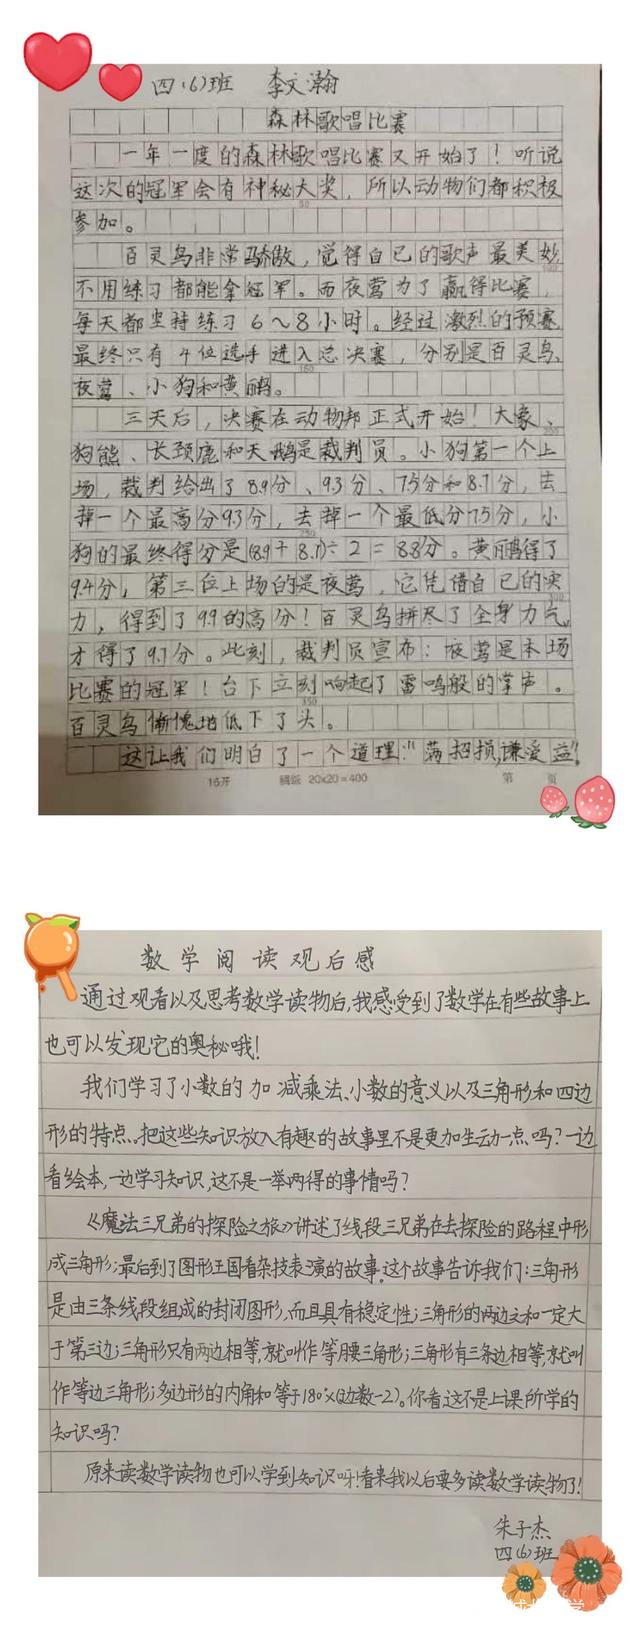 四(6)班 李文瀚
森林歌唱比赛
一年一度的森林歌唱比赛又开始了！听说
这次的冠军会有神秘大奖，所以动物们都积极
参加。
百灵鸟非常骄傲，觉得自己的歌声最美妙
不用练习都能拿冠军。而夜莺为了赢得比赛，
每天都坚持练习6～8小时。经过激烈的预赛
最终只有4位选手进入总决赛，分别是百灵鸟、
夜莺、小狗和黄鹂。
三天后，决赛在动物邦正式开始！大象、
狗熊、长颈鹿和天鹅是裁判员。小狗第一个上
场，裁判给出了8.9分、9.3分、7.5分和8.7分，去
掉一个最高分9.3分，去掉一个最低分7.5分，小
狗的最终得分是(8.9+8.7)÷2=8.8分。黄鹂得了
9.4分，第三位上场的是夜莺，它凭借自己的实
力，得到了9.9的高分！百灵鸟拼尽了全身力气，
才得了9.7分。此刻，裁判员宣布：夜莺是本场
比赛的冠军！台下立刻响起了雷鸣般的掌声。
百灵鸟惭愧地低下了头。
这让我们明白了一个道理："满招损，谦受益"。
16开 稿纸 20x20=400 第 页
数学阅读观后感
通过观看以及思考数学读物后，我感受到了数学在有些故事上
也可以发现它的奥秘哦！
我们学习了小数的加减乘法、小数的意义以及三角形和四边
形的特点。把这些知识放入有趣的故事里不是更加生动一点吗？一边
看绘本，一边学习知识，这不是一举两得的事情吗？
《魔法三兄弟的探险之旅》讲述了线段三兄弟在去探险的路程中形
成三角形；最后到了图形王国看杂技表演的故事。这个故事告诉我们：三角形
是由三条线段组成的封闭图形，而且具有稳定性；三角形的两边之和一定大
于第三边；三角形只有两边相等，就叫作等腰三角形；三角形有三条边相等，就叫
作等边三角形；多边形的内角和等于180°×(边数-2)。你看这不是上课所学的
知识吗？
原来读数学读物也可以学到知识呀！看来我以后要多读数学读物了！
朱子杰
四(6)班